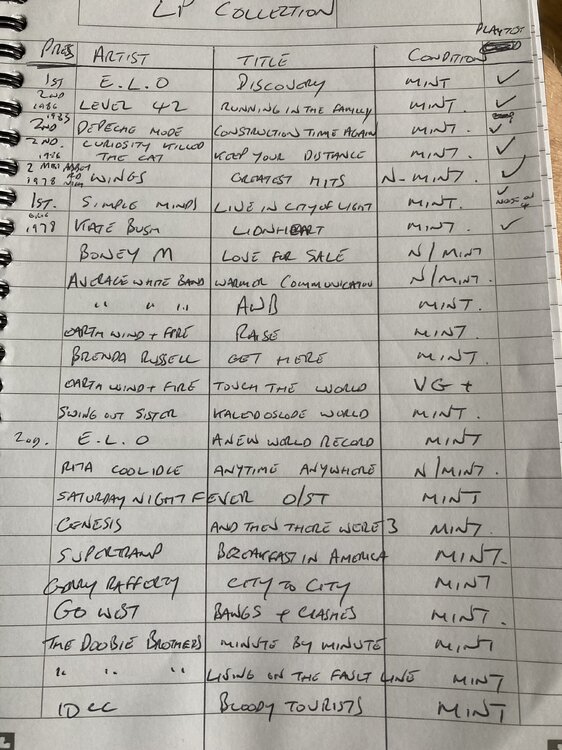 LP COLLECTION
PRESS ARTIST TITLE CONDITION PLAYTEST
1ST E.L.O DISCOVERY MINT ✓
2ND 1986 LEVEL 42 RUNNING IN THE FAMILY MINT. ✓
1983 2ND DEPECHE MODE CONSTRUCTION TIME AGAIN MINT. ✓
2ND. 1986 CURIOSITY KILLED THE CAT KEEP YOUR DISTANCE MINT. ✓
2 1978 WINGS GREATEST HITS N-MINT. ✓
1ST. SIMPLE MINDS LIVE IN CITY OF LIGHT MINT. ✓ NOISE ON 4
1978 KATE BUSH LIONHEART MINT. ✓
BONEY M LOVE FOR SALE N/MINT
AVERAGE WHITE BAND WARMER COMMUNICATION N/MINT.
" " " AWB MINT.
EARTH WIND + FIRE RAISE MINT.
BRENDA RUSSELL GET HERE MINT.
EARTH WIND + FIRE TOUCH THE WORLD VG +
SWING OUT SISTER KALEIDOSCODE WORLD MINT.
2ND. E.L.O A NEW WORLD RECORD MINT
RITA COOLIDLE ANYTIME ANYWHERE N/MINT.
SATURDAY NIGHT FEVER O/ST MINT
GENESIS AND THEN THERE WERE 3 MINT.
SUPERTRAMP BREAKFAST IN AMERICA MINT.
GERRY RAFFERTY CITY TO CITY MINT
GO WEST BANGS + CRASHES MINT.
THE DOOBIE BROTHERS MINUTE BY MINUTE MINT
" " " LIVING ON THE FAULT LINE MINT
10CC BLOODY TOURISTS MINT